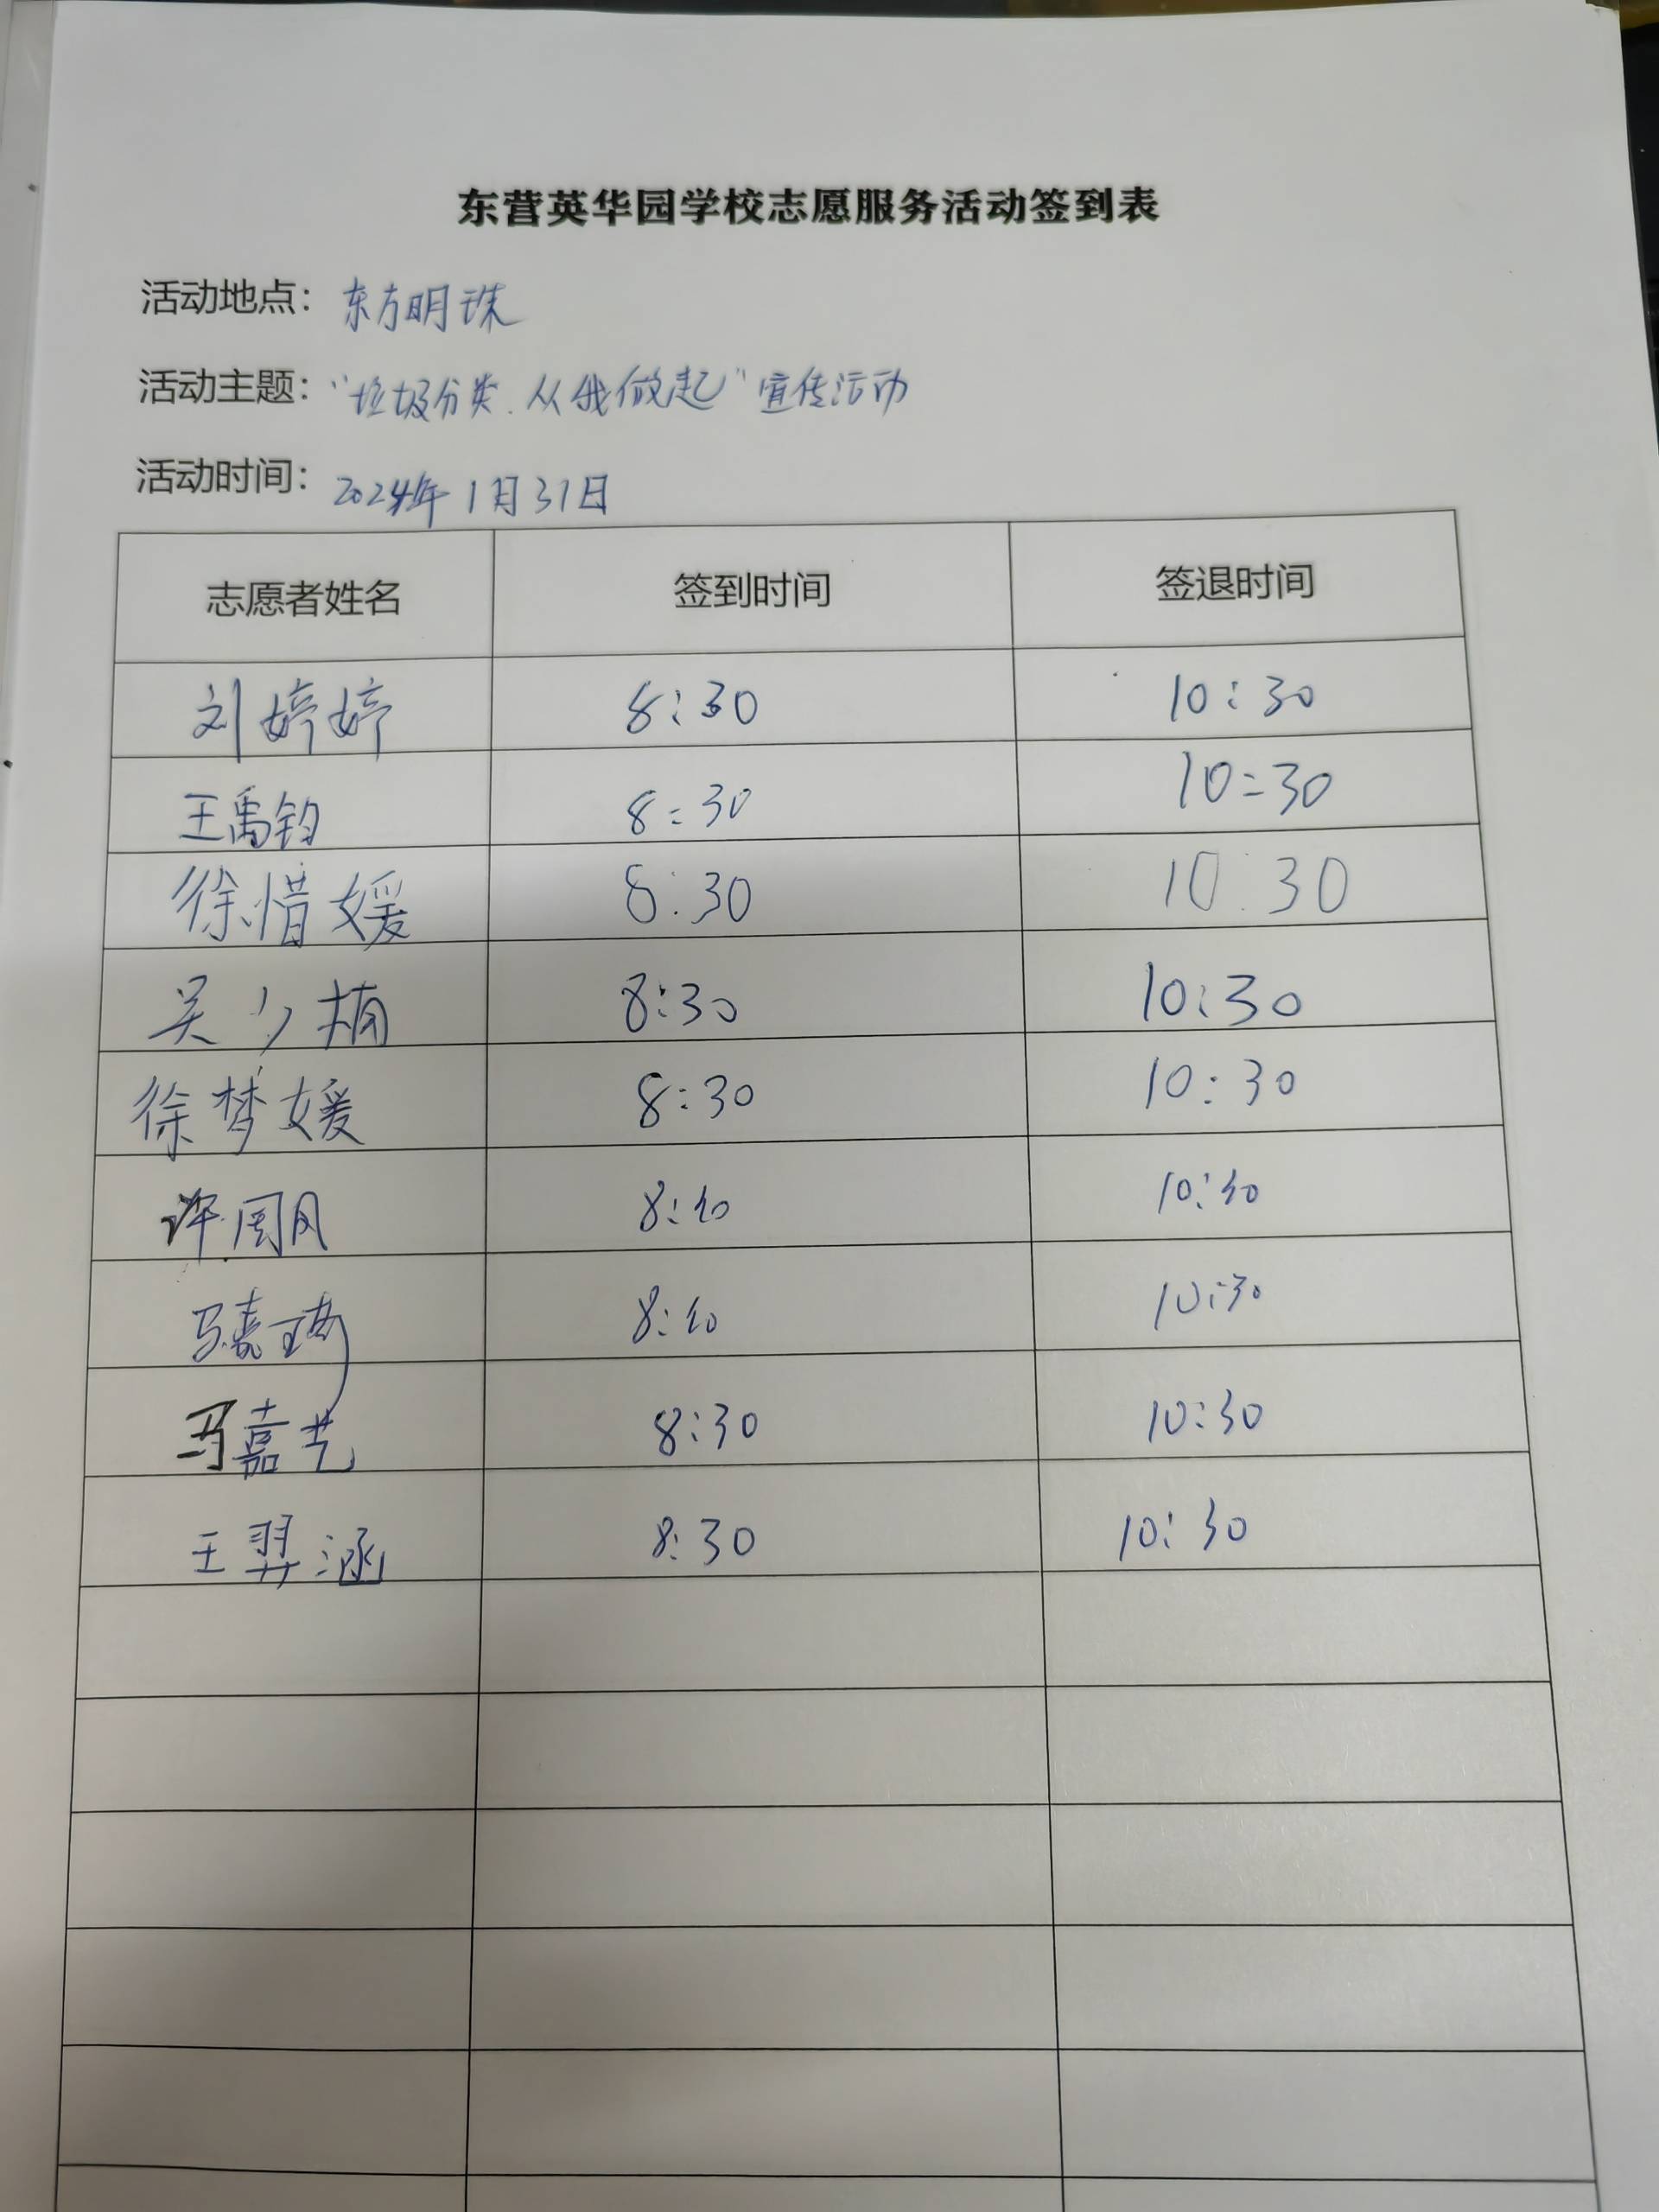 东营英华园学校志愿服务活动签到表
活动地点：东方明珠
活动主题："垃圾分类.从我做起"宣传活动
活动时间：2024年1月31日
志愿者姓名 签到时间 签退时间
刘婷婷 8:30 10:30
王禹钧 8:30 10:30
徐惜媛 8:30 10:30
吴少楠 8:30 10:30
徐梦媛 8:30 10:30
许周 8:30 10:30
马嘉 8:30 10:30
马嘉艺 8:30 10:30
王羿涵 8:30 10:30